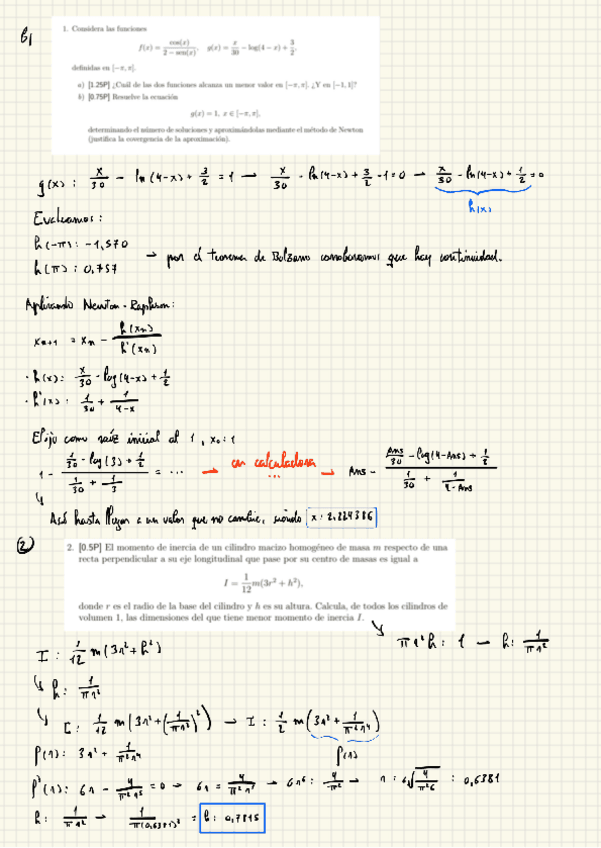 b)
1. Considera las funciones
f(x) = cos(x) / (2 − sen(x)), g(x) = x/30 − log(4 − x) + 3/2,
definidas en [−π, π].
a) [1.25P] ¿Cuál de las dos funciones alcanza un menor valor en [−π, π]. ¿Y en [−1, 1]?
b) [0.75P] Resuelve la ecuación
g(x) = 1, x ∈ [−π, π],
determinando el número de soluciones y aproximándolas mediante el método de Newton
(justifica la covergencia de la aproximación).
g(x): x/30 − ln(4-x) + 3/2 = 1 → x/30 − ln(4-x) + 3/2 − 1 = 0 → x/30 − ln(4-x) + 1/2 = 0
h(x)
Evaluamos:
h(-π): -1,570
h(π): 0,757 → por el teorema de Bolzano corroboramos que hay continuidad.
Aplicando Newton-Raphson:
xn+1 = xn − h(xn)/h'(xn)
· h(x): x/30 − log(4-x) + 1/2
· h'(x): 1/30 + 1/(4-x)
Elijo como raíz inicial al 1, x0: 1
1 − (1/30 − log(3) + 1/2) / (1/30 + 1/3) = ... → en calculadora ... → Ans − (Ans/30 − log(4-Ans) + 1/2) / (1/30 + 1/(4-Ans))
Así hasta llegar a un valor que no cambie, siendo x: 2,224386
2
2. [0.5P] El momento de inercia de un cilindro macizo homogéneo de masa m respecto de una
recta perpendicular a su eje longitudinal que pase por su centro de masas es igual a
I = 1/12 m(3r² + h²),
donde r es el radio de la base del cilindro y h es su altura. Calcula, de todos los cilindros de
volumen 1, las dimensiones del que tiene menor momento de inercia I.
πr²h: 1 → h: 1/πr²
I: 1/12 m(3r² + h²)
h: 1/πr²
I: 1/12 m(3r² + (1/πr²)²) → I: 1/2 m(3r² + 1/π²r⁴)
f(r): 3r² + 1/π²r⁴
f(r)
f'(r): 6r − 4/π²r⁵ = 0 → 6r = 4/π²r⁵ → 6r⁶: 4/π² → r: ⁶√(4/π²6) : 0,6381
h: 1/πr² → 1/π(0,6381)² = h: 0,7815